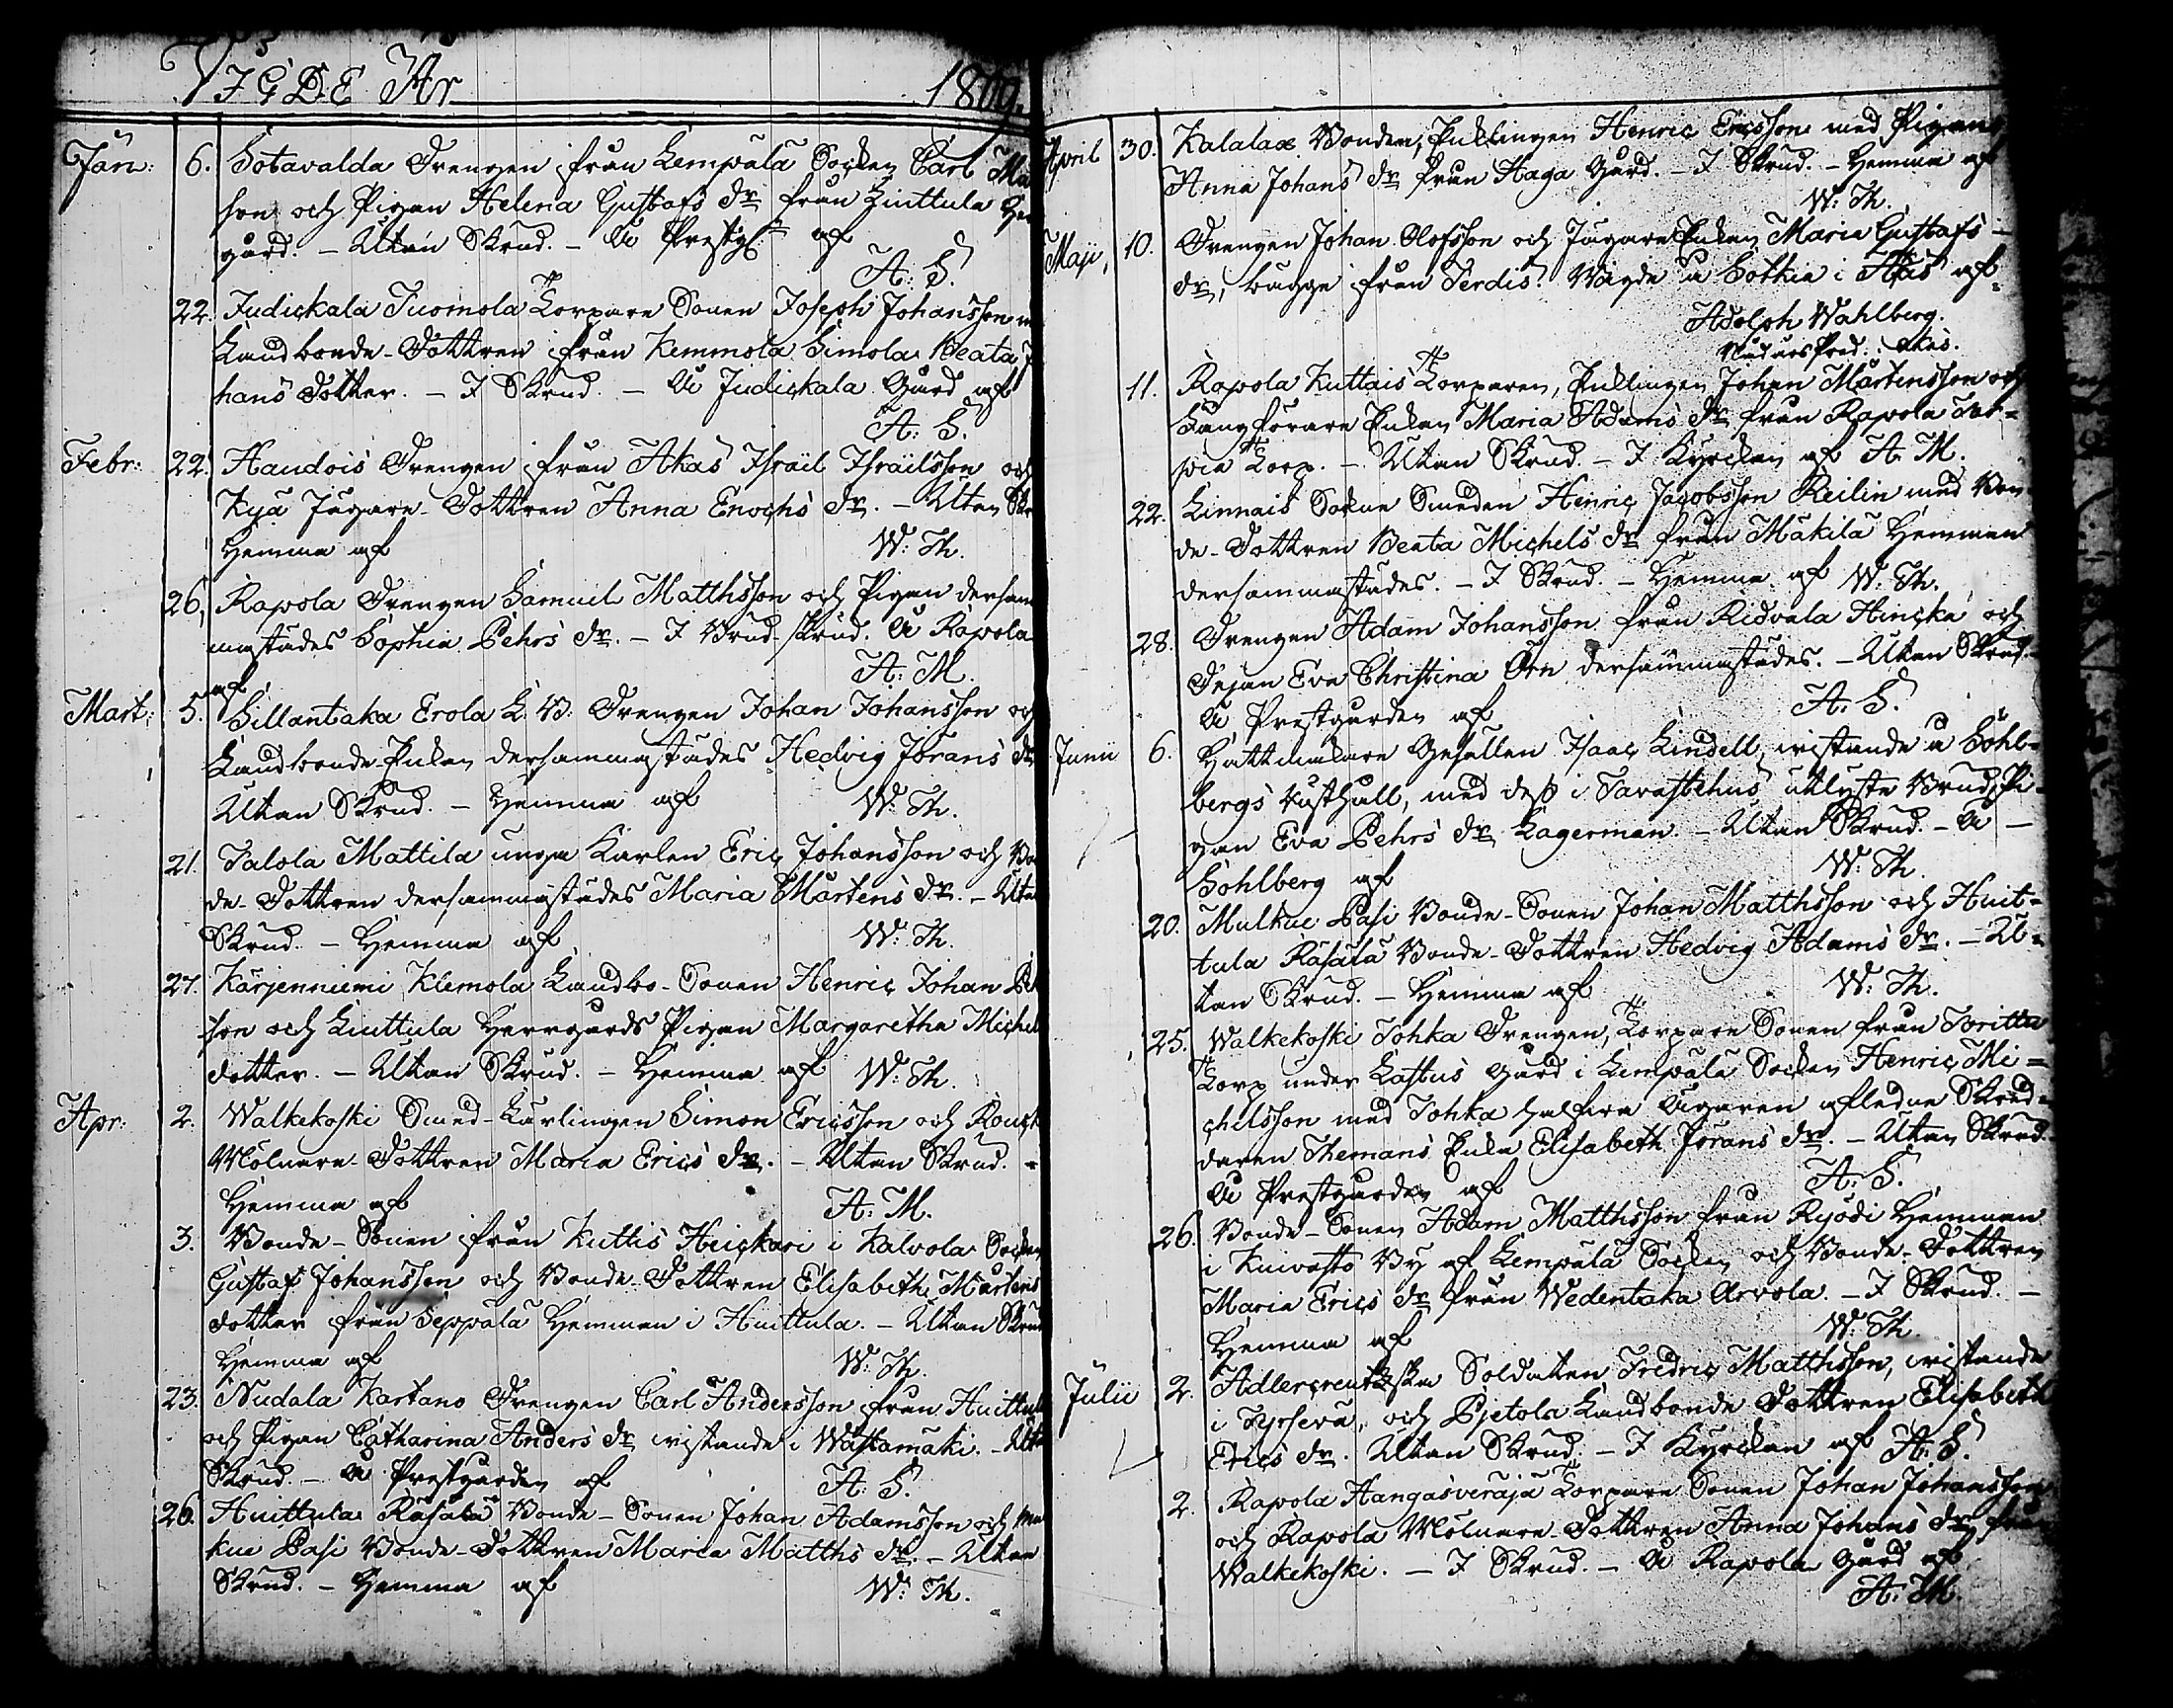 VIGDE År 1809.
Jan: 6. Sotavalda Drengen från Lempälä Socken Carl Ma
son och Pigan Helena Gustafs dr från Liuttula
gård. – Utan Skrud. – Å Prestg: af
A: S.
22. Judickala Tuomola Torpare Sonen Joseph Johansson
Landbonde-Dottren från Kemmola Simola Beata
hans dotter. – I Skrud. – Å Judickala Gård af
A: S.
Febr: 22. Haudois Drengen från Akas Israël Israëlsson och
Kyä Jägare-Dottren Anna Enochs dr. – Utan
Hemma af W: Th.
26. Rapola Drengen Samuel Matthsson och Pigan dersam
mastädes Sophia Pehrs dr. – I Brud-skrud. Å Rapola
af A: M.
Mart: 5. Sillantaka Erola L. B. Drengen Johan Johansson
Landbonde Enkan dersammastädes Hedvig Jörans
Utan Skrud. – Hemma af W: Th.
21. Talola Mattila unga Karlen Eric Johansson och
de-Dottren dersammastädes Maria Mårtens dr. –
Skrud. – Hemma af W: Th.
27. Kärjenniemi Klemola Landbo-Sonen Henric Johan
son och Liuttula Herrgårds Pigan Margaretha Michel
dotter. – Utan Skrud. – Hemma af W: Th.
Apr: 2. Walkekoski Smed-Lärlingen Simon Ericsson och
Mölnare-Dottren Maria Erics dr. – Utan Skrud. –
Hemma af A: M.
3. Bonde-Sonen från Kuttis Heickari i Kalvola Socken
Gustaf Johansson och Bonde-Dottren Elisabeth Mårtens
dotter från Seppälä Hemman i Huittula. – Utan Skrud
Hemma af W: Th.
23. Nudala Kartano Drengen Carl Andersson från Huittula
och Pigan Catharina Anders dr vistande i Wastamäki. –
Skrud. – Å Prestgården af A: S.
26. Huittula Räsälä Bonde-Sonen Johan Adamsson och
kue Pasi Bonde-Dottren Maria Matths dr. – Utan
Skrud. – Hemma af W: Th.
April 30. Kalalax Bonden, Enklingen Henric Ericsson med Pigan
Anna Johans dr från Haga Gård. – I Skrud. – Hemma af
W: Th.
Maji, 10. Drengen Johan Olofsson och Jägare Enkan Maria Gustafs
dr, bägge från Terdis. Vigde å Sotkia i Akas af
Adolph Wahlberg.
11. Rapola Kuttais Torparen, Enklingen Johan Mårtensson och
Enkan Maria Adams dr från Rapola
Torp. – Utan Skrud. – I Kyrckan af A. M.
22. Linnais Sockne Smeden Henric Jacobsson Reilin med Bon
de-Dottren Beata Michels dr från Mäkilä Hemman
dersammastädes. – I Skrud. – Hemma af W: Th.
28. Drengen Adam Johansson från Ridvala Hincka och
Dejan Eva Christina Örn dersammastädes. – Utan Skrud. –
Å Prestgården af A: S.
Junii 6. Hattmakare Gesällen Isaac Lindell, vistande å Sohl-
bergs Rusthåll, med dess i Tavastehus utlyste Brud, Pi-
gan Eva Pehrs dr Lagerman. – Utan Skrud. – Å –
Sohlberg af W: Th.
20. Mulkue Pasi Bonde-Sonen Johan Matthsson och Huit-
tula Räsälä Bonde-Dottren Hedvig Adams dr. – U-
tan Skrud. – Hemma af W: Th.
25. Walkekoski Tohka Drengen, Torpare Sonen från Toritta
Torp under Lastus Gård i Lempälä Socken Henric Mi-
chelsson med Tohka halfva Ägaren afledne Skräd-
daren Themans Enka Elisabeth Jörans dr. – Utan Skrud.
Å Prestgården af A: S.
26. Bonde-Sonen Adam Matthsson från Ryödi Hemman
i Kuivasto By af Lempälä Socken och Bonde-Dottren
Maria Erics dr från Wedentaka Arvola. – I Skrud. –
Hemma af W: Th.
Julii 2. Adlercreutzska Soldaten Fredric Matthsson, vistande
i Tyrfvis, och Pjetola Landbonde Dottren Elisabeth
Erics dr. Utan Skrud. – I Kyrckan af A: S.
2. Rapola Hangasveräjä Torpare Sonen Johan Johansson
och Rapola Mölnare-Dottren Anna Johans dr från
Walkekoski. – I Skrud. – Å Rapola Gård af
A: M.